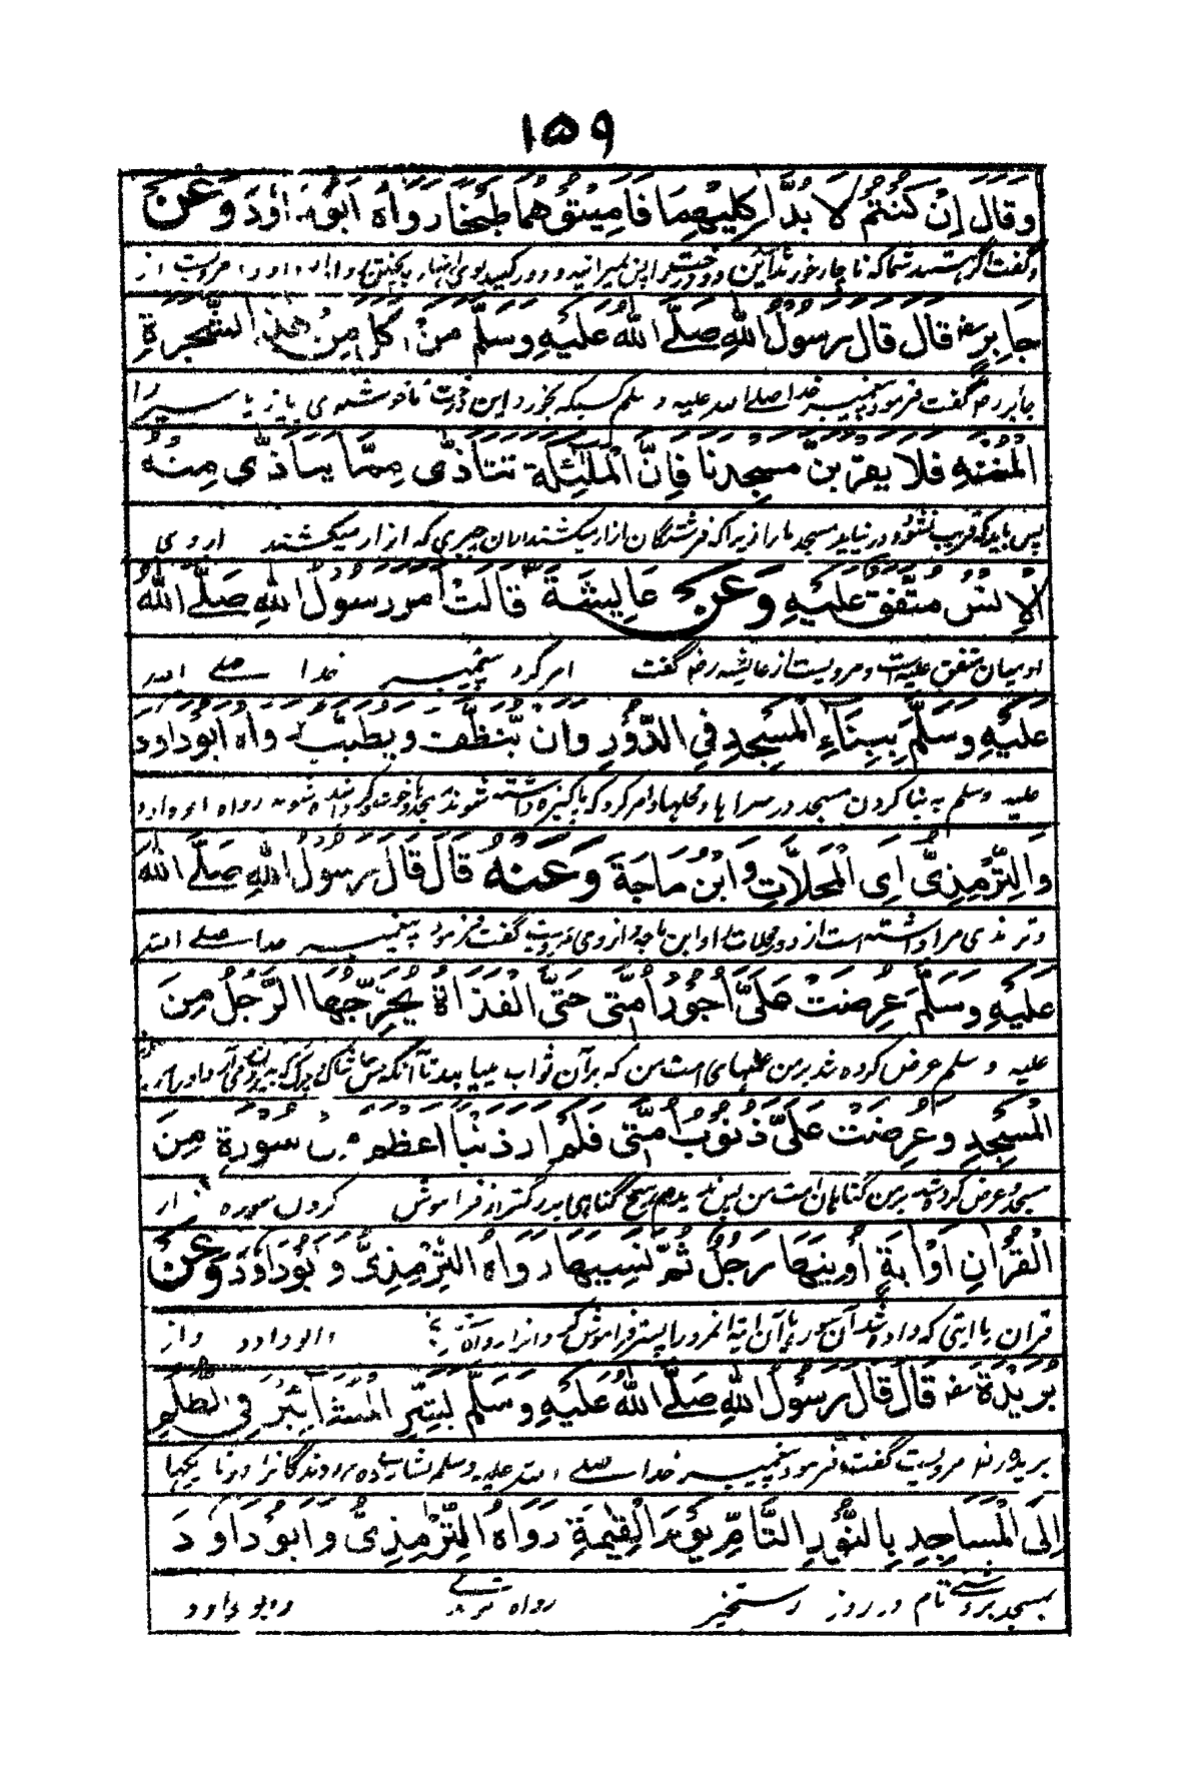 ١٥٩
وَقَالَ إِنْ كُنْتُمْ لَا بُدَّ اٰكِلِيْهِمَا فَاَمِيْتُوْهُمَا طَبْخًا رَوَاهُ اَبُوْ دَاوُدَ وَعَنْ
وگفت اگر هستید شما که ناچار خورنده این دو درخت را پس بمیرانید و دور کنید بوی اینها را به پختن رواه ابو داود و مرویست از
جَابِرٍ رضہ قَالَ قَالَ رَسُوْلُ اللّٰهِ صَلَّى اللّٰهُ عَلَيْهِ وَسَلَّمَ مَنْ اَكَلَ مِنْ هٰذِهِ الشَّجَرَةِ
جابر رضہ گفت فرمود پیغمبر خدا صلے اللہ علیہ و سلم کسیکہ بخورد این درخت ناخوشبوی پیاز یا سیر را
الْمُنْتِنَةِ فَلَا يَقْرَبَنَّ مَسْجِدَنَا فَاِنَّ الْمَلٰٓئِكَةَ تَتَاَذّٰى مِمَّا يَتَاَذّٰى مِنْهُ
پس باید که قریب نشود و در نیاید مسجد ما را زیرا که فرشتگان ازار میکشند ازان چیزی که ازار میکشند ازوی
الْاِنْسُ مُتَّفَقٌ عَلَيْهِ وَعَنْ عَايِشَةَ قَالَتْ اَمَرَ رَسُوْلُ اللّٰهِ صَلَّى اللّٰهُ
اومیان متفق علیہ است و مرویست از عایشہ رضہ گفت امر کرد پیغمبر خدا صلے اللہ
عَلَيْهِ وَسَلَّمَ بِبِنَاءِ الْمَسْجِدِ فِي الدُّوْرِ وَاَنْ يُّنَظَّفَ وَيُطَيَّبَ رَوَاهُ اَبُوْ دَاوُدَ
علیہ وسلم بہ بنا کردن مسجد در سرا ها و محلها و امر کرد کہ پاکیزه داشتہ شوند مسجدها و خوشبو کرده شوند رواه ابو داود
وَالتِّرْمِذِىُّ اَىِ الْمَحَلَّاتِ وَابْنُ مَاجَةَ وَعَنْهُ قَالَ قَالَ رَسُوْلُ اللّٰهِ صَلَّى اللّٰهُ
و ترمذی مراد داشتہ است از دور محلات را و ابن ماجہ و از وی مرویست گفت فرمود پیغمبر خدا صلے اللہ
عَلَيْهِ وَسَلَّمَ عُرِضَتْ عَلَىَّ اُجُوْرُ اُمَّتِىْ حَتَّى الْقَذَاةُ يُخْرِجُهَا الرَّجُلُ مِنَ
علیہ و سلم عرض کرده شد بر من عملهای امت من کہ بر آن ثواب میابند تا آنکہ خاشاکی
الْمَسْجِدِ وَعُرِضَتْ عَلَىَّ ذُنُوْبُ اُمَّتِىْ فَلَمْ اَرَ ذَنْبًا اَعْظَمَ مِنْ سُوْرَةٍ مِنَ
مسجد و عرض کرده شد بر من گناهان امت من پس ندیدم هیچ گناهی بزرگتر از فراموش کردن سوره از
الْقُرْاٰنِ اَوْ اٰيَةٍ اُوْتِيَهَا رَجُلٌ ثُمَّ نَسِيَهَا رَوَاهُ التِّرْمِذِىُّ وَاَبُوْ دَاوُدَ وَعَنْ
قران یا ایتی کہ داده شد آن سوره یا آن ایة را مرد پستر فراموش کرد انرا رواه ابو داود و از
بُرَيْدَةَ رضہ قَالَ قَالَ رَسُوْلُ اللّٰهِ صَلَّى اللّٰهُ عَلَيْهِ وَسَلَّمَ بَشِّرِ الْمَشَّائِيْنَ فِى الظُّلَمِ
بریده رضہ مرویست گفت فرمود پیغمبر خدا صلے اللہ علیہ وسلم بشارت ده روندگانرا در تاریکیها
اِلَى الْمَسَاجِدِ بِالنُّوْرِ التَّامِّ يَوْمَ الْقِيٰمَةِ رَوَاهُ التِّرْمِذِىُّ وَاَبُوْ دَاوُدَ
بمسجد بروشنی تام در روز رستخیز رواه ترمذی و ابو داود